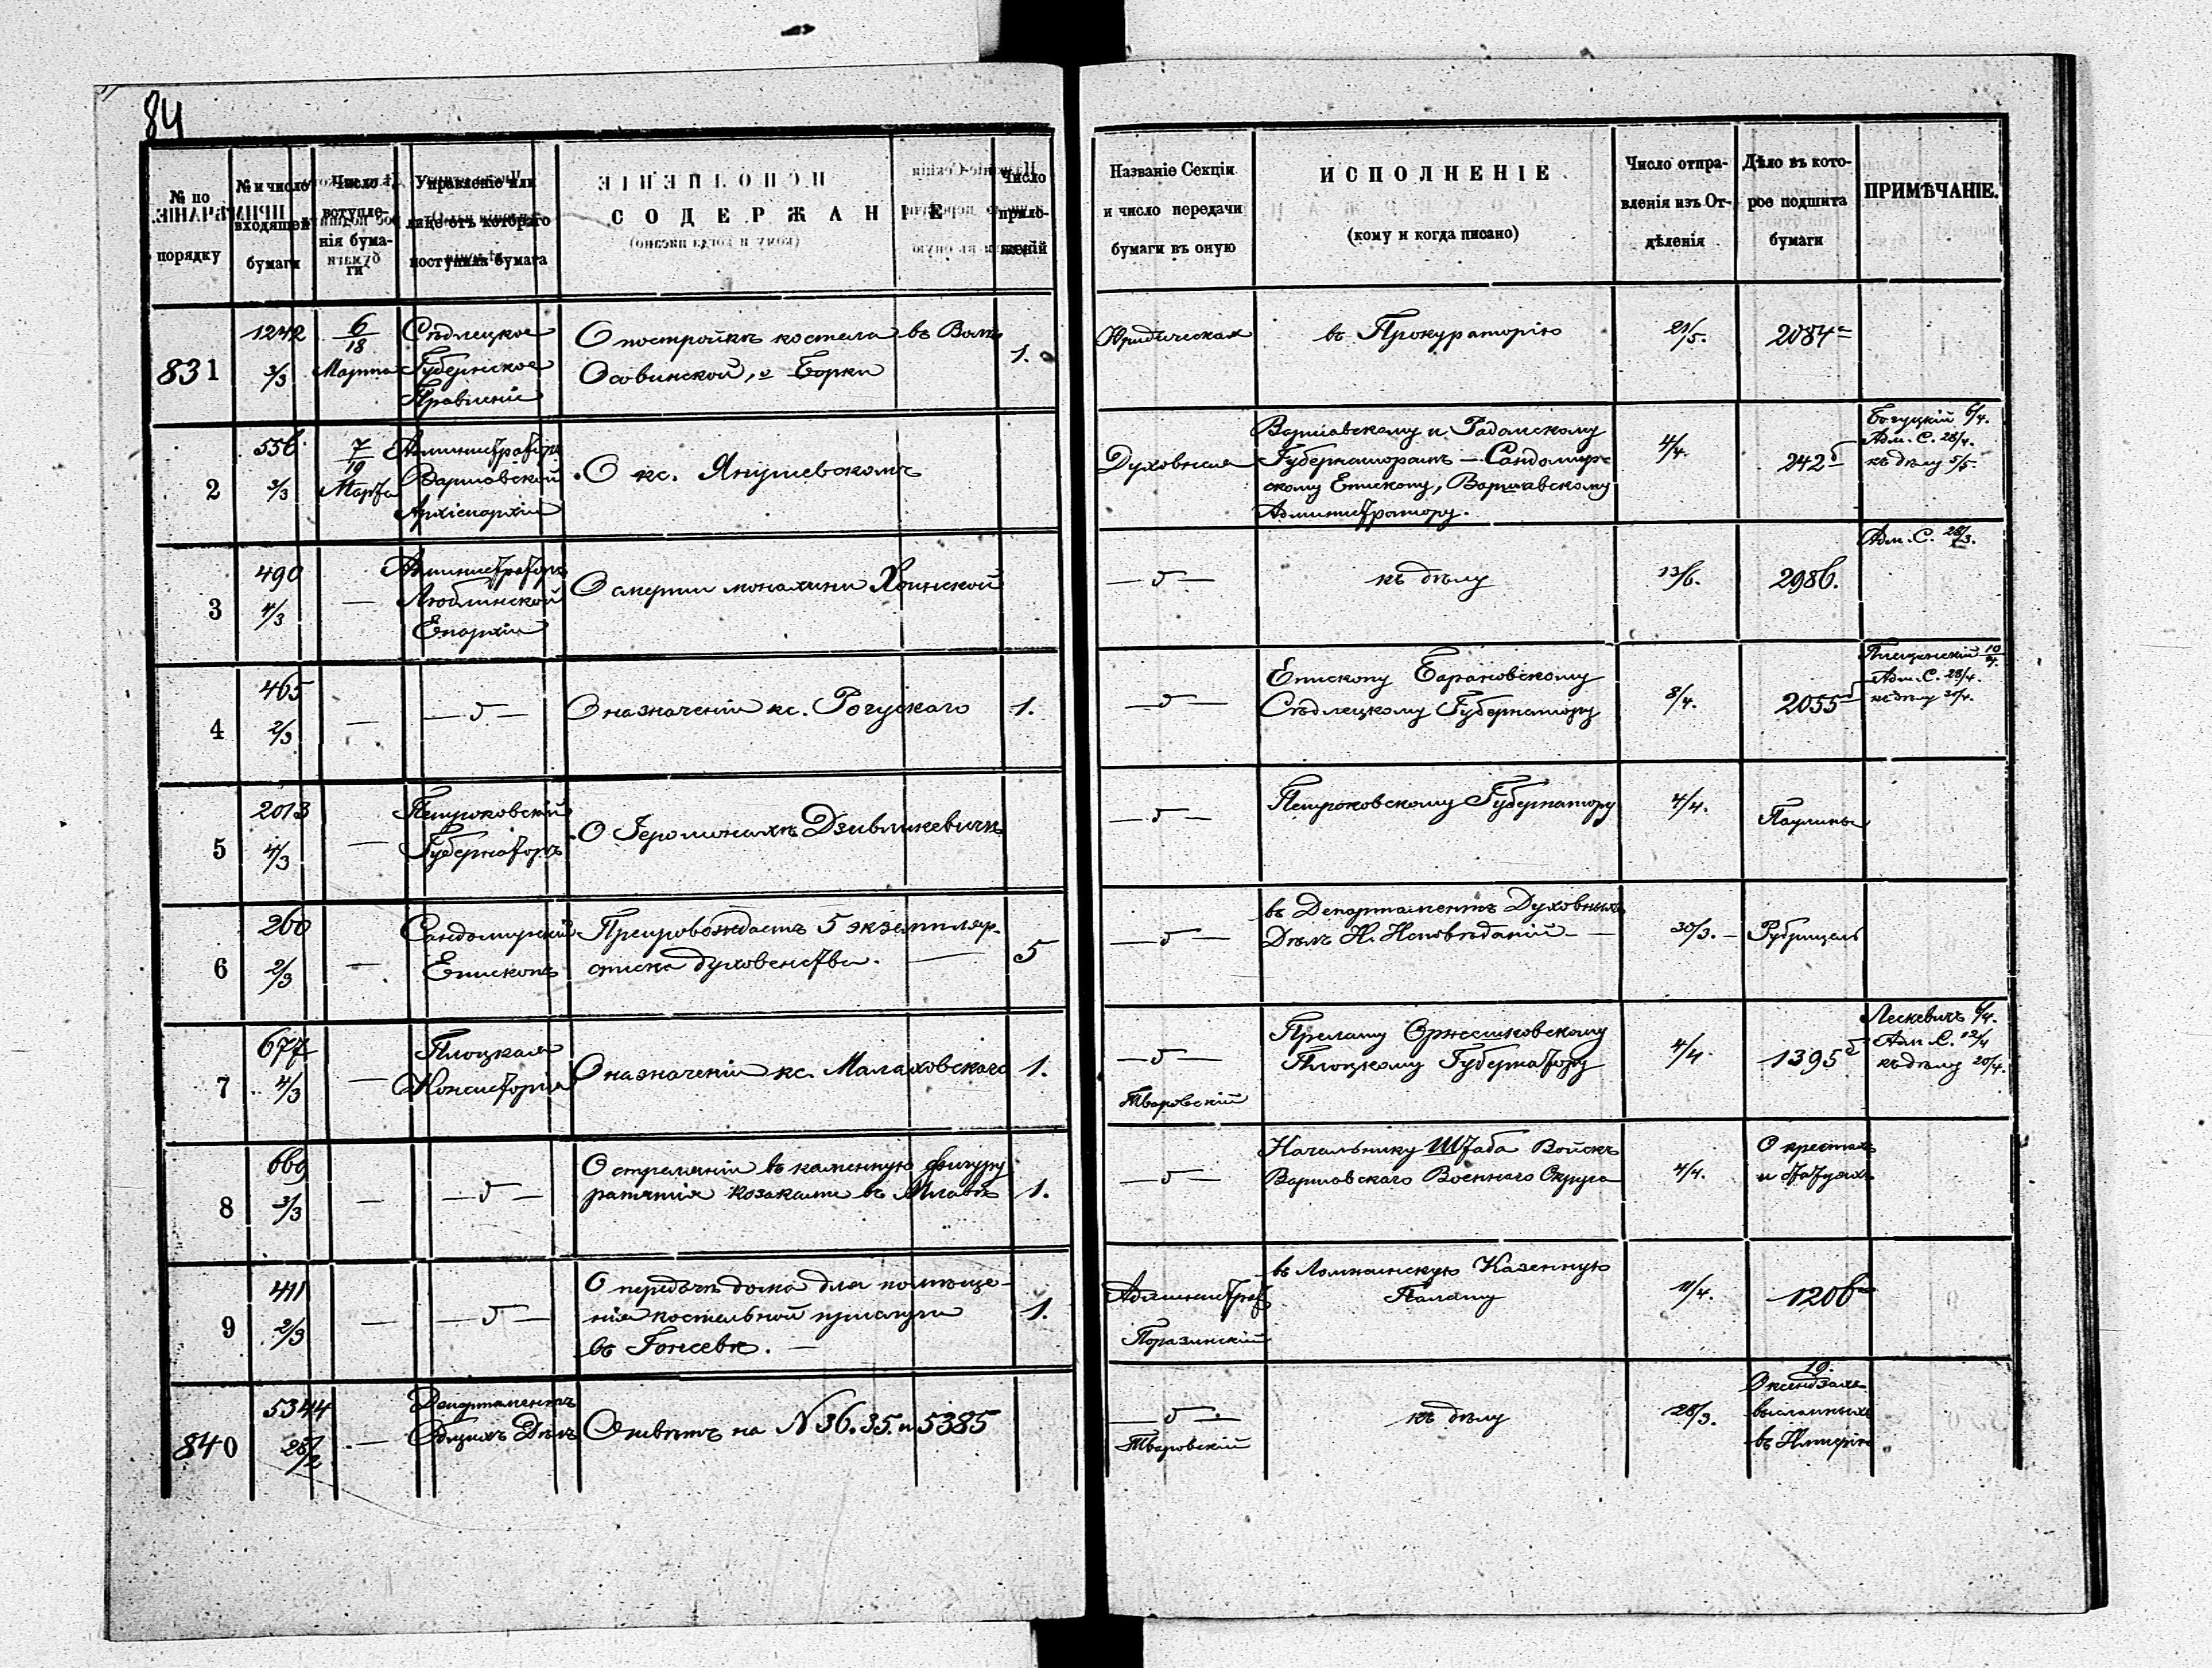 84
№ по порядку
№ и число входящей бумаги
Число вступленія бумаги
Управленіе или лице отъ котораго поступила бумага
СОДЕРЖАНІЕ
Число приложеній
Названіе Секціи и число передачи бумаги въ оную
ИСПОЛНЕНІЕ
(кому и когда писано)
Число отправленія изъ Отдѣленія
Дѣло въ которое подшита бумаги
ПРИМѢЧАНІЕ.
831
1242
3/3
6/18
Марта
Сѣдлецкое
Губернское
Правленіе
О постройкѣ костела въ Волѣ
Осовинской, и Борки
1.
Юридическая
въ Прокураторію
21/5.
2084а
2
556
3/3
7/19
Марта
Администраторъ
Варшавской
Архіепархіи
О кс. Янушевскомъ
Духовная
Варшавскому и Радомскому
Губернаторамъ — Сандомирскому Епископу, Варшавскому
Администратору.
4/4.
242б
Богуцкій 6/4.
Адм. С. 28/4.
къ дѣлу 5/5.
3
490
4/3
—
Администраторъ
Люблинской
Епархіи
О смерти монахини Хоинской
— „ —
къ дѣлу
13/6.
298б.
Адм. С. 28/3.
4
465
2/3
—
— „ —
О назначеніи кс. Рогускаго
1.
— „ —
Епископу Барановскому
Сѣдлецкому Губернатору
8/4.
2055б
Адм. С. 28/4.
къ дѣлу 30/4.
5
2013
4/3
—
Петроковскій
Губернаторъ
О Іеромонахѣ
— „ —
Петроковскому Губернатору
4/4.
Паулины
6
260
2/3
—
Сандомирскій
Епископъ
Препровождаетъ 5 экземпляр.
списка духовенства. —
5
— „ —
въ Департаментъ Духовныхъ
Дѣлъ И. Исповѣданій —
30/3. —
Рубрицель
7
677
4/3
—
Плоцкая
Консисторія
О назначеніи кс. Малаховскаго
1.
— „ —
Тваровскій
Прелату Оржешковскому
Плоцкому Губернатору
4/4.
1395б
Лескевичъ 6/4.
Адм. С. 12/4
къ дѣлу 20/4.
8
669
3/3
—
— „ —
О стреляніи въ каменную фигуру
распятія козаками въ Млавѣ
1.
— „ —
Начальнику Штаба Войскъ
Варшавскаго Военнаго Округа
4/4.
О крестахъ
и статуяхъ
9
411
2/3
—
— „ —
О передачѣ дома для помѣщенія костельной прислуги
въ Гонсевѣ. —
1.
Администрат.
Поразинскій
въ Ломжинскую Казенную
Палату
11/4.
1206
840
5344
28/2
—
Департаментъ
Общихъ Дѣлъ
Отвѣтъ на N 36.35. и 5385
— „ —
Тваровскій
къ дѣлу
28/3.
19.
О ксендзахъ
высланныхъ
въ Имперію